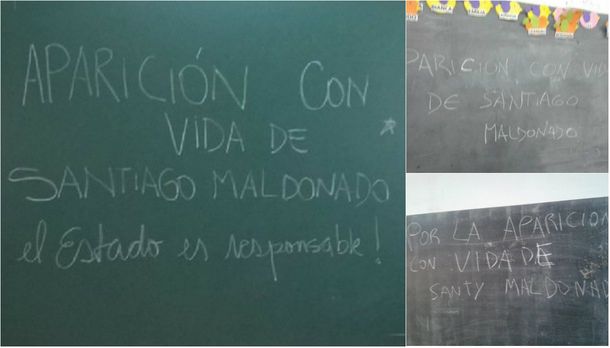 APARICIÓN CON
VIDA DE
SANTIAGO MALDONADO
el Estado es responsable!
PARICION CON VID
DE SANTIAGO
MALDONADO
POR LA APARICION
CON VIDA DE
SANTY MALDONAD